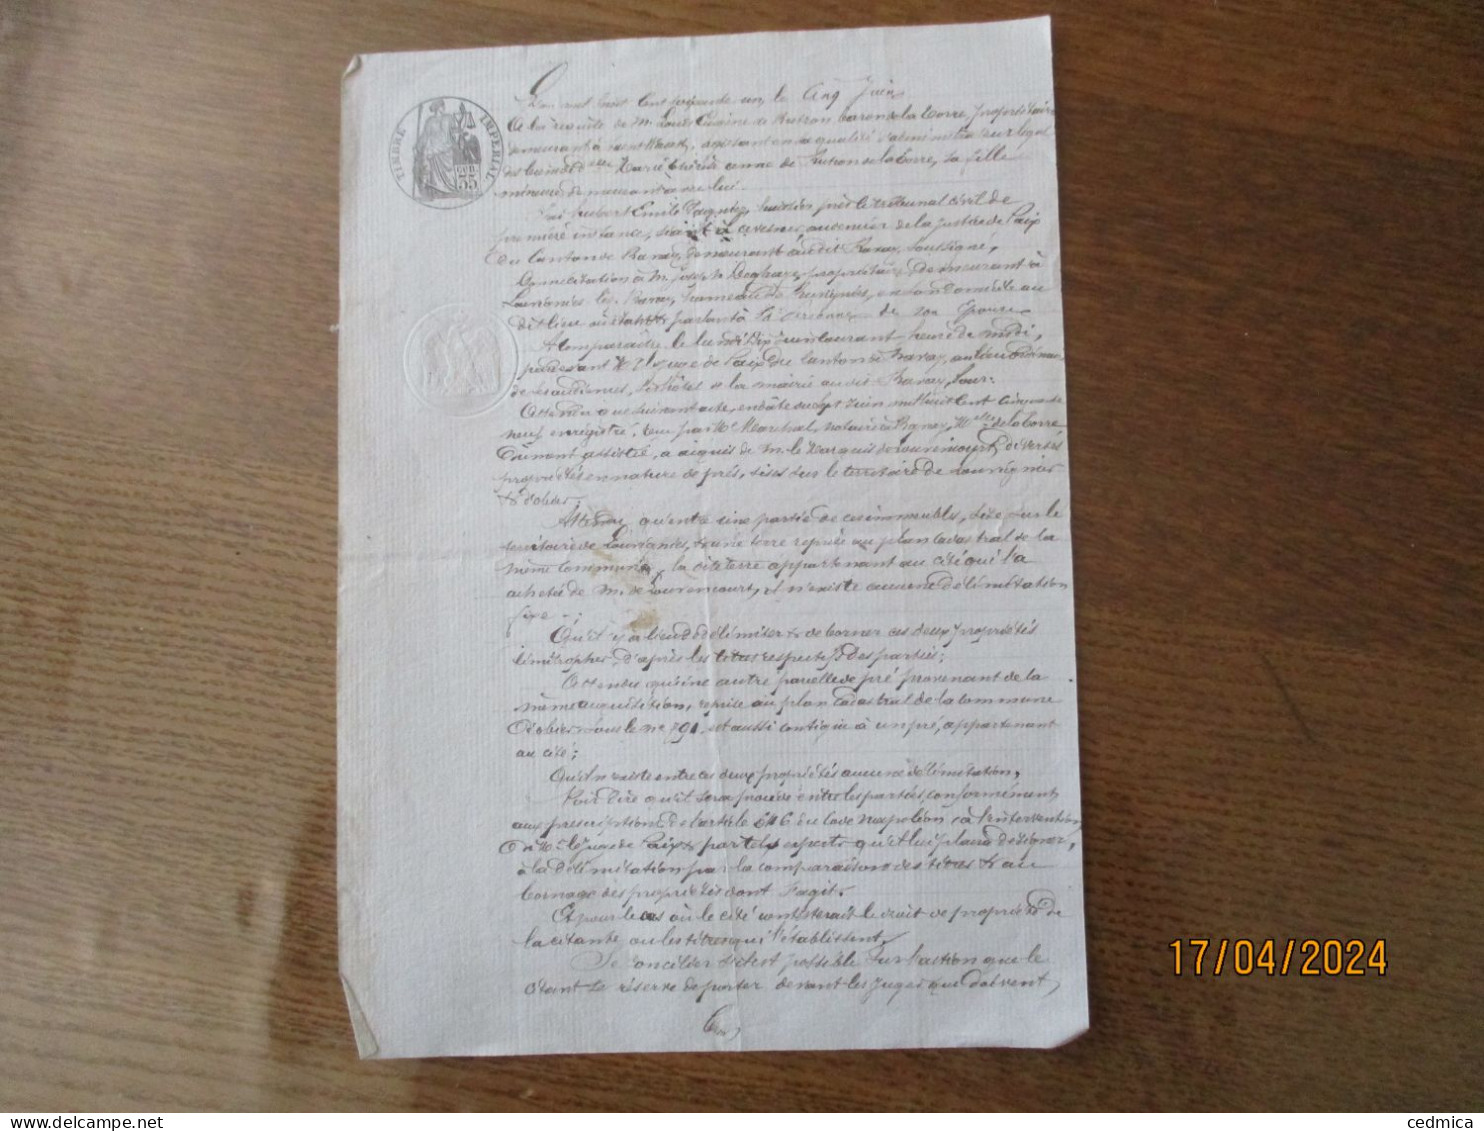 TIMBRE IMPERIAL
55
L'an mil huit cent soixante un, le Cinq Juin
A la requête de M. Louis Eugène de baron de la torre, propriétaire
demeurant à agissant en sa qualité d'administrateur légal
des biens de Marie anne de de la torre, sa fille
mineure demeurant avec lui.
Hubert Emile huissier près le tribunal civil de
première instance, séant à avesnes, audiencier de la Justice de Paix
du Canton de Bavay, demeurant audit Bavay, soussigné,
Donné citation à M. Joseph propriétaire, demeurant à
Louvignies lez Bavay, hameau de en son domicile au
dit lieu où étant & parlant à la personne de son Epouse
A comparaître le lundi Dix Juin courant heure de midi,
pardevant M. le Juge de Paix du Canton de Bavay, au lieu ordinaire
de ses audiences, sis hôtel de la mairie audit Bavay, Pour:
Attendu que suivant acte, en date du sept Juin mil huit cent cinquante
neuf enregistré, reçu par Me Marechal, notaire à Bavay, Melle de la torre
assistée, a acquis de M. le Marquis de Louvencourt, diverses
propriétés en nature de prés, sises sur le territoire de Louvignies
& d'obies;
Attendu qu'entre une partie de ces immeubles, sise sur le
territoire de Louvignies, & une terre reprise au plan cadastral de la
même commune, la dite terre appartenant au cité qui l'a
achetée de M. de Louvencourt, il n'existe aucune délimitation
fixe;
Qu'il y a lieu de délimiter & de borner ces deux propriétés
limitrophes, d'après les titres respectifs des parties;
Attendu qu'une autre parcelle de pré provenant de la
même acquisition, reprise au plan cadastral de la commune
d'obies sous le no 791, est aussi contigue à un pré, appartenant
au cité;
Qu'il n'existe entre ces deux propriétés aucune délimitation,
Voir dire qu'il sera procédé entre les parties, conformément
aux prescriptions de l'article 646 du code Napoléon & à l'intervention
de M. le Juge de Paix & par tels experts qu'il lui plaira désigner,
à la délimitation par la comparaison des titres & au
bornage des propriétés dont s'agit.
Et pour le cas où le cité contesterait le droit de propriété de
la citante ou les titres qui l'établissent,
Se concilier si c'est possible sur l'action que le
se réserve de porter devant les Juges qui doivent
17/04/2024
cedmica